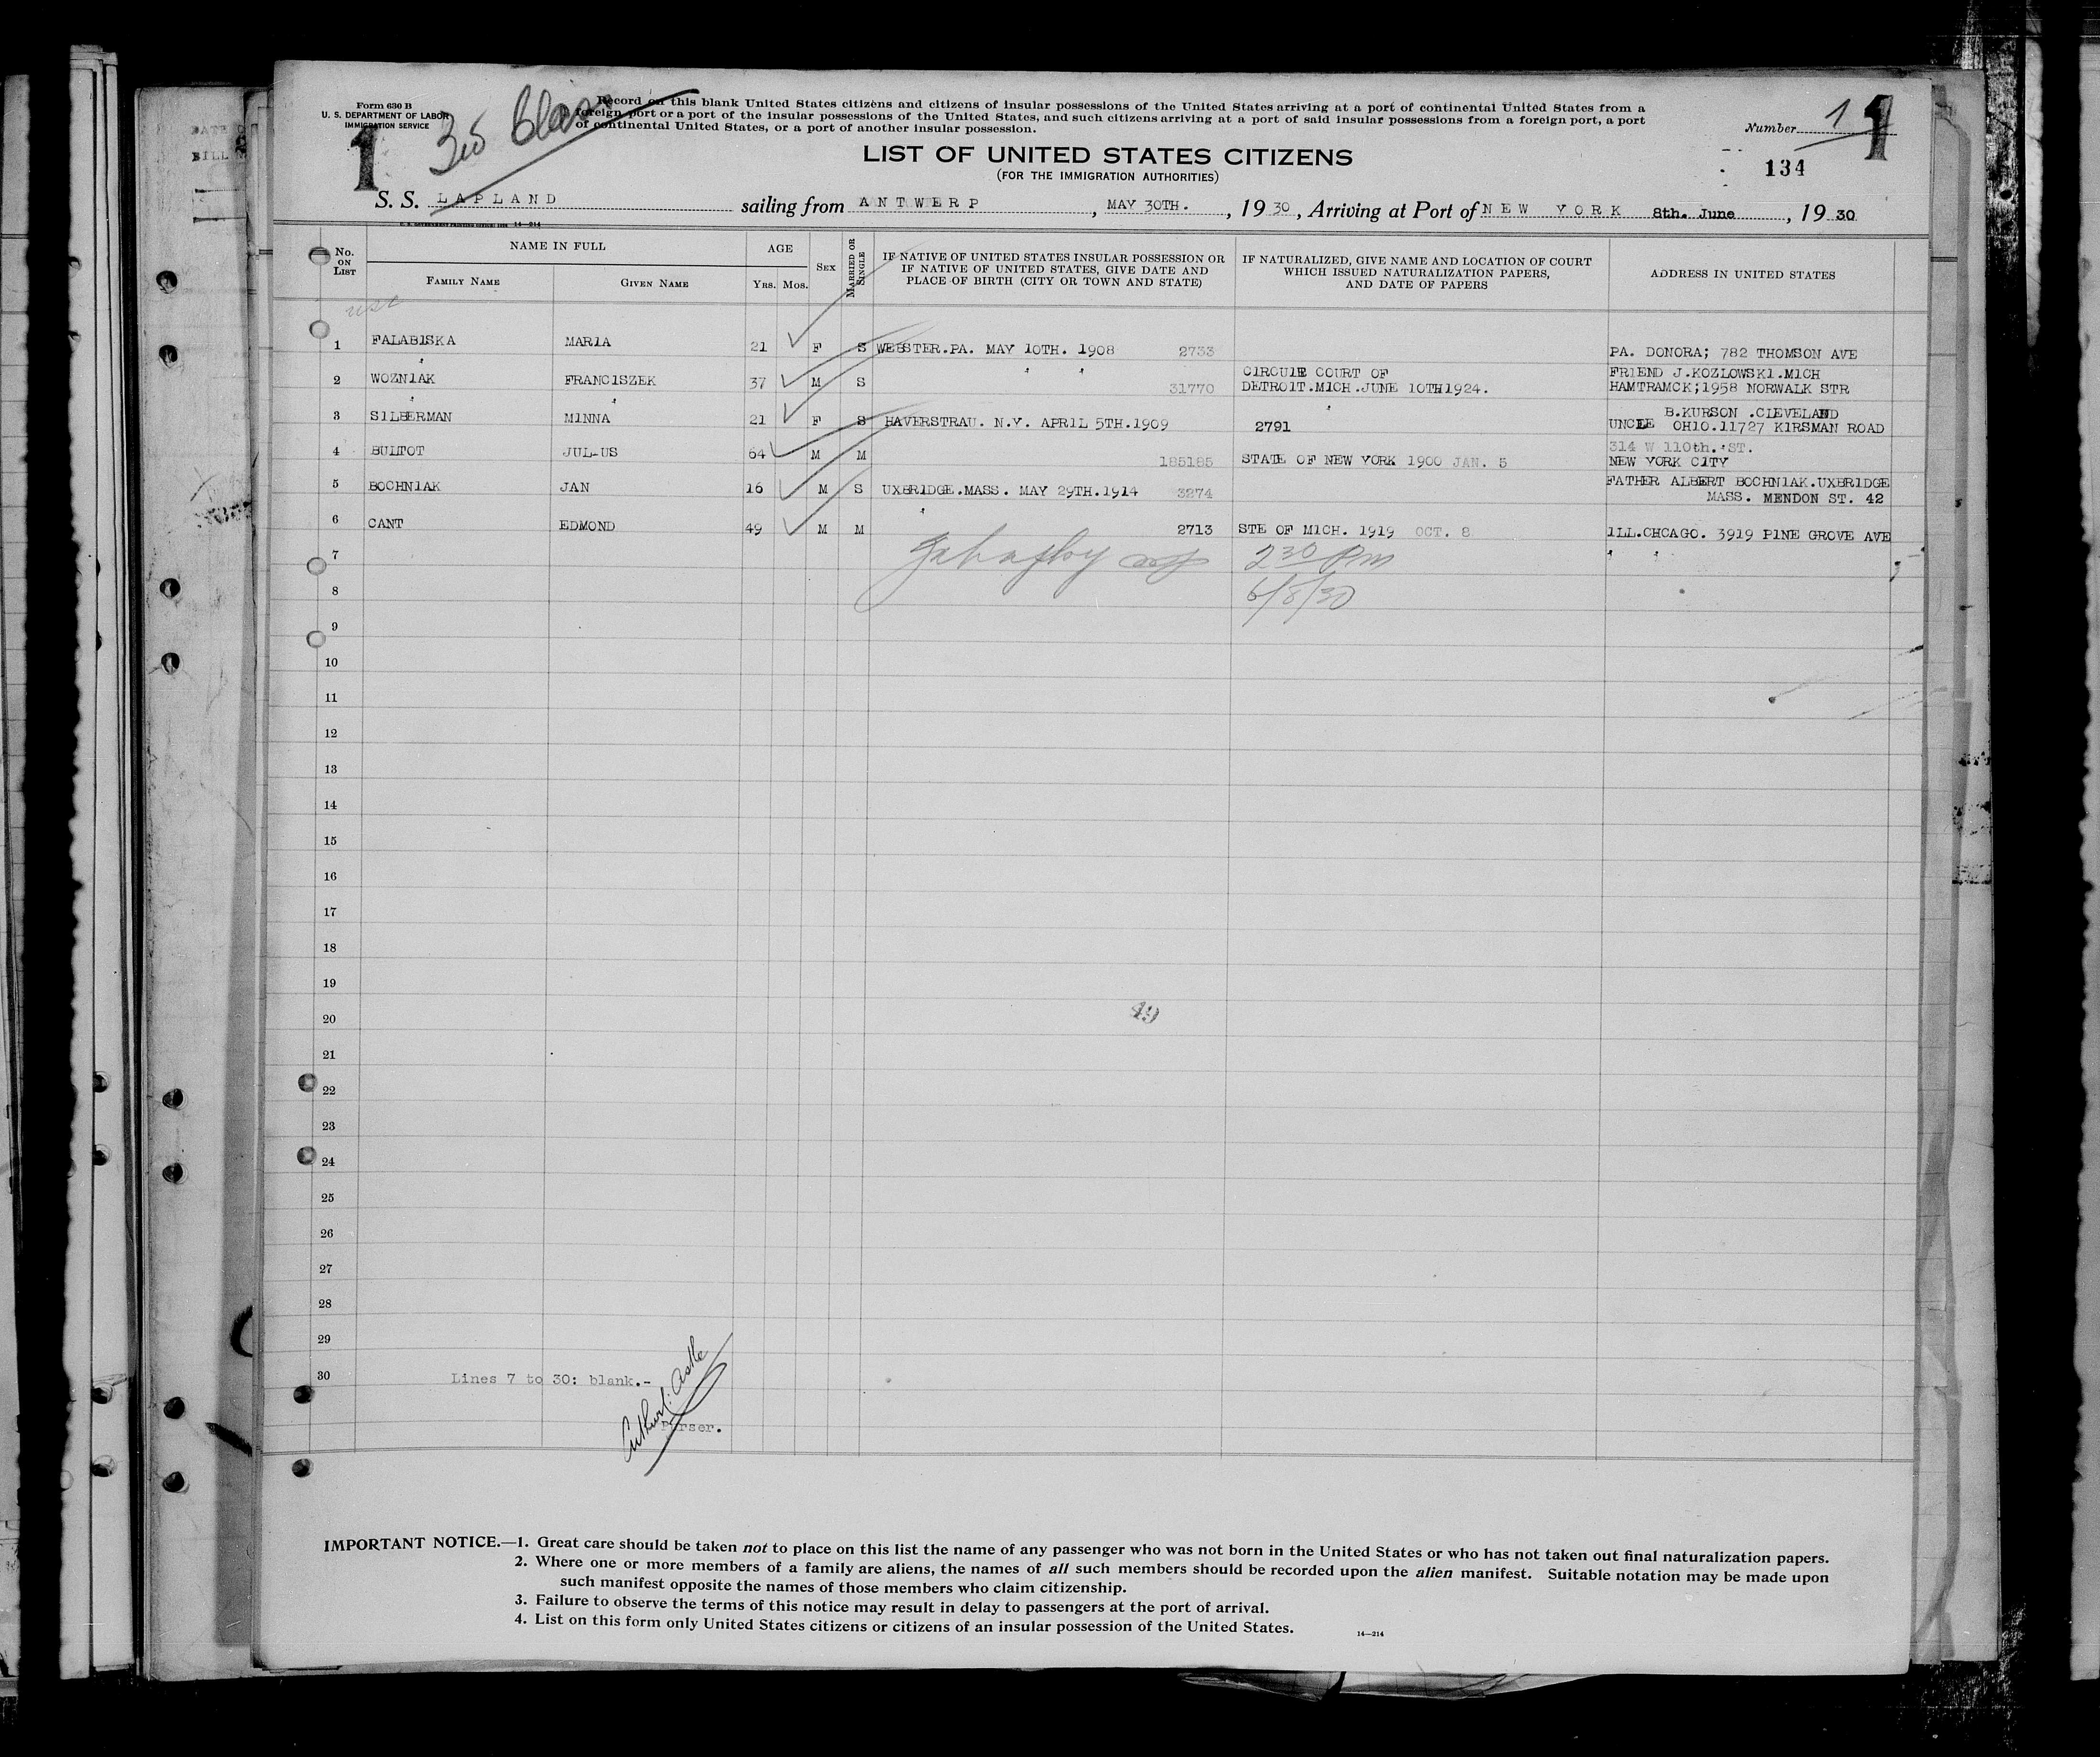 Form 630 B
U. S. DEPARTMENT OF LABOR
IMMIGRATION SERVICE
1
3rd Class
Record on this blank United States citizens and citizens of insular possessions of the United States arriving at a port of continental United States from a
foreign port or a port of the insular possessions of the United States, and such citizens arriving at a port of said insular possessions from a foreign port, a port
of continental United States, or a port of another insular possession.
Number 1
1
LIST OF UNITED STATES CITIZENS
(FOR THE IMMIGRATION AUTHORITIES)
134
S. S. LAPLAND sailing from ANTWERP, MAY 30TH., 19 30, Arriving at Port of NEW YORK 8th. June, 19 30
No. ON LIST
NAME IN FULL
FAMILY NAME GIVEN NAME
AGE
YRS. MOS.
SEX
MARRIED OR SINGLE
IF NATIVE OF UNITED STATES INSULAR POSSESSION OR
IF NATIVE OF UNITED STATES, GIVE DATE AND
PLACE OF BIRTH (CITY OR TOWN AND STATE)
IF NATURALIZED, GIVE NAME AND LOCATION OF COURT
WHICH ISSUED NATURALIZATION PAPERS,
AND DATE OF PAPERS
ADDRESS IN UNITED STATES
usc
1 FALAB1SKA MAR1A 21 F S WEBSTER.PA. MAY 10TH. 1908 2733 PA. DONORA; 782 THOMSON AVE
2 WOZN1AK FRANC1SZEK 37 M S 31770 C1RCU1E COURT OF DETRO1T.M1CH.JUNE 10TH1924. FR1END J.KOZLOWSK1.M1CH
HAMTRAMCK;1958 NORWALK STR
3 S1LBERMAN M1NNA 21 F S HAVERSTRAU. N.Y. APR1L 5TH.1909 2791 B.KURSON .CLEVELAND
UNCLE OH1O.11727 K1RSMAN ROAD
4 BULTOT JUL-US 64 M M 185185 STATE OF NEW YORK 1900 JAN. 5 314 W 110th. ST.
NEW YORK C1TY
5 BOCHN1AK JAN 16 M S UXBR1DGE.MASS. MAY 29TH.1914 3274 FATHER ALBERT BOCHN1AK.UXBR1DGE
MASS. MENDON ST. 42
6 CANT EDMOND 49 M M 2713 STE OF M1CH. 1919 OCT. 8 1LL.CHCAGO. 3919 P1NE GROVE AVE
7 2 30 Pm
8 6/8/30
9
10
11
12
13
14
15
16
17
18
19
20 49
21
22
23
24
25
26
27
28
29
30 Lines 7 to 30: blank.-
Purser.
IMPORTANT NOTICE.—1. Great care should be taken not to place on this list the name of any passenger who was not born in the United States or who has not taken out final naturalization papers.
2. Where one or more members of a family are aliens, the names of all such members should be recorded upon the alien manifest. Suitable notation may be made upon
such manifest opposite the names of those members who claim citizenship.
3. Failure to observe the terms of this notice may result in delay to passengers at the port of arrival.
4. List on this form only United States citizens or citizens of an insular possession of the United States.
14—214